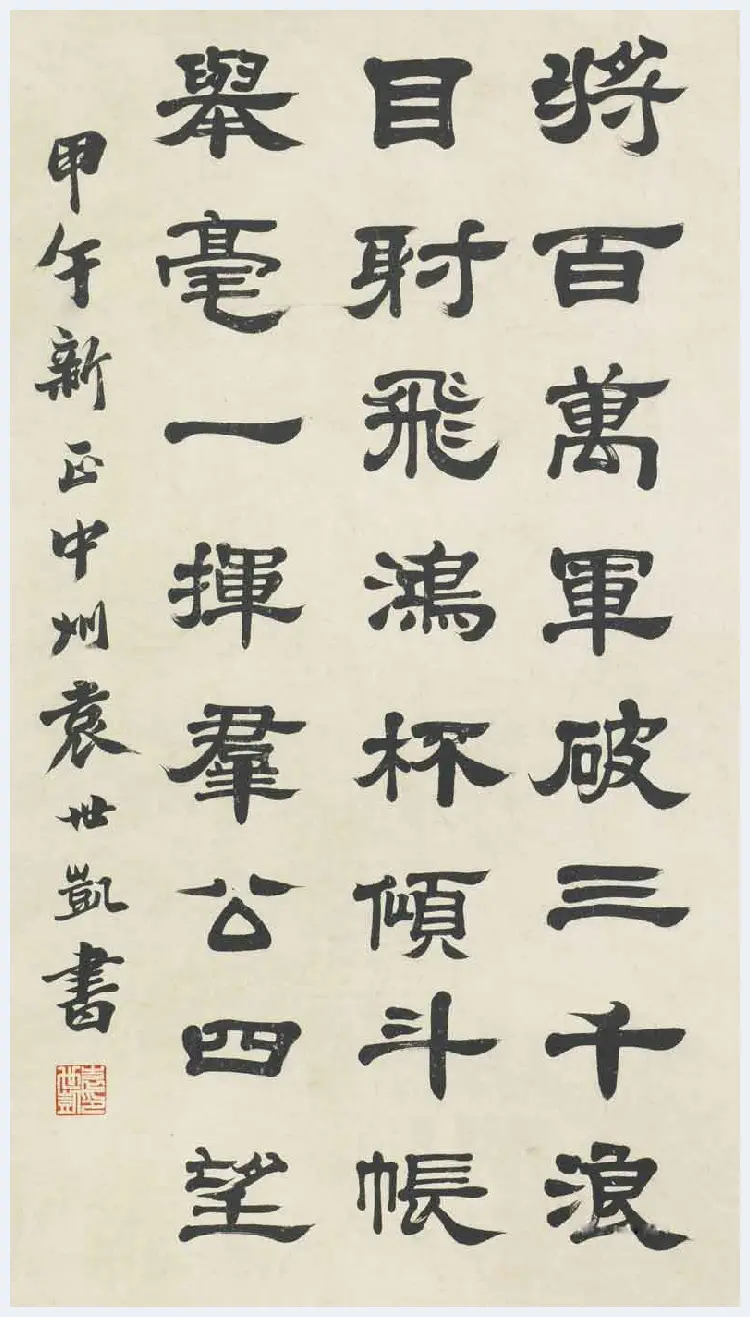 將百萬軍破三千浪
目射飛鴻杯傾斗帳
舉毫一揮羣公四望
甲午新正中州袁世凱書
袁世凱印